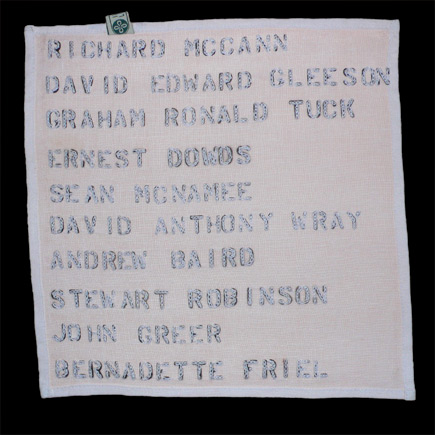 RICHARD MCCANN
DAVID EDWARD GLEESON
GRAHAM RONALD TUCK
ERNEST DOWDS
SEAN MCNAMEE
DAVID ANTHONY WRAY
ANDREW BAIRD
STEWART ROBINSON
JOHN GREER
BERNADETTE FRIEL